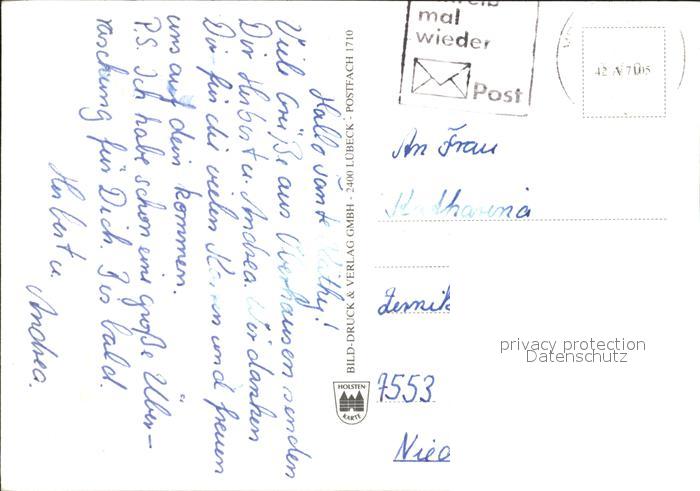 Hallo Tante Käthy!
Viele Grüße aus Oberhausen senden
Dir Herbert u. Andrea. Wir danken
Dir für die vielen Karten und freuen
uns auf dein kommen.
P.S. Ich habe schon eine große Über-
raschung für Dich. Bis bald.
Herbert u.
Andrea.
BILD-DRUCK & VERLAG GMBH - 2400 LÜBECK - POSTFACH 1710
HOLSTEN-
KARTE
mal
wieder
Post
42 A 7105
An Frau
Katharina
7553
privacy protection
Datenschutz